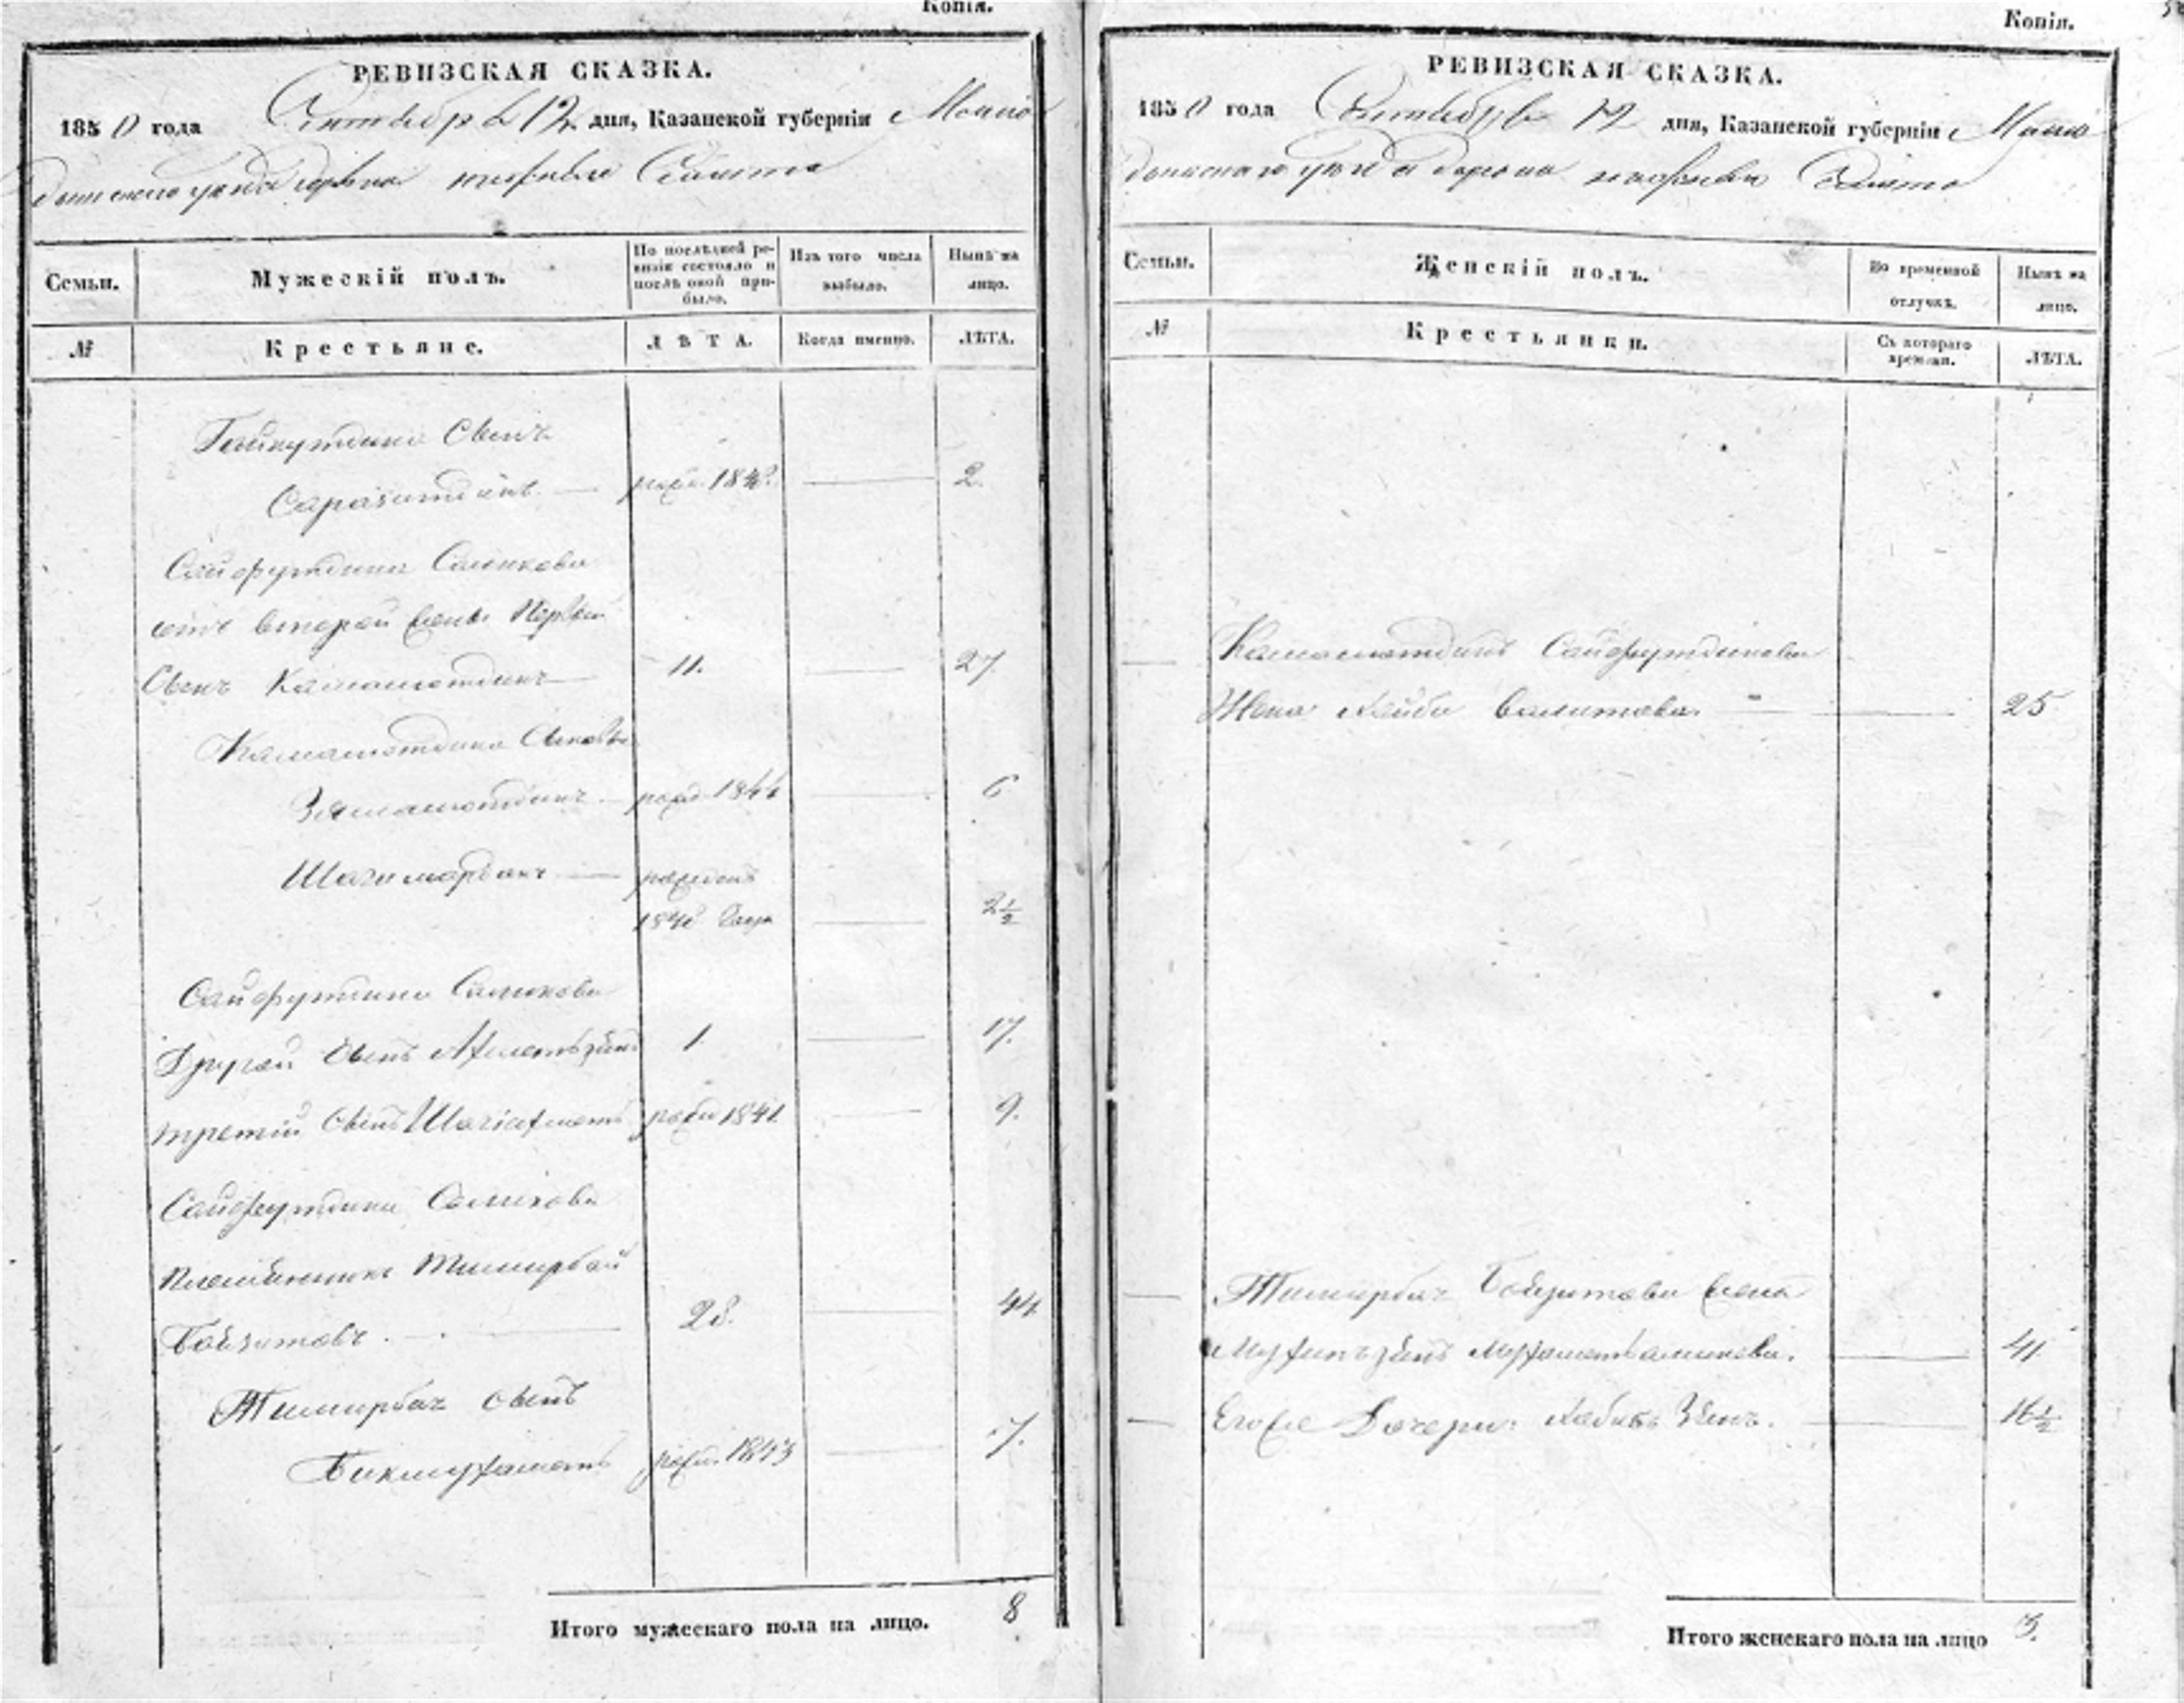 Копія.
РЕВИЗСКАЯ СКАЗКА.
1850 года Октября 12 дня, Казанской губерніи Мама
дышскаго уезда деревни
Семьи.
Мужескій полъ.
По послѣдней ре-
визіи состояло и
послѣ оной при-
было.
Изъ того числа
выбыло.
Нынѣ на
лицо.
№
Крестьяне.
ЛѢТА.
Когда именно.
ЛѢТА.
Гайнутдина Сынъ
Саразитдинъ — рожд. 1848. — 2.
Сайфутдина Саликова
отъ второй жены первой
Сынъ Камалетдинъ — 11. — 27
Камалетдина Сыновья
Замалетдинъ — рожд. 1844 — 6
Шагимарданъ — рожденъ
1848 года — 2½
Сайфутдина Саликова
Другой Сынъ Ахметьзянъ 1 — 17.
третій Сынъ Шагіахметъ рожд 1841 — 9.
Сайфутдина Саликова
племянникъ Тимирбай
Баязитовъ. — 28. — 44
Тимирбая сынъ
Бикмухаметъ рожд. 1843 — 7.
Итого мужескаго пола на лицо. 8
Копія.
РЕВИЗСКАЯ СКАЗКА.
1850 года Октября 12 дня, Казанской губерніи Мама
дышскаго уезда деревни
Семьи.
Женскій полъ.
Во временной
отлучкѣ.
Нынѣ на
лицо.
№
Крестьянки.
Съ котораго
времени.
ЛѢТА.
— Камалетдина Сайфутдинова
Жена Хайба Валитова — 25
— Тимирбая Баязитова жена
— 41
— Его же Дочери: Хабиб Зянъ. — 16½
Итого женскаго пола на лицо 3.